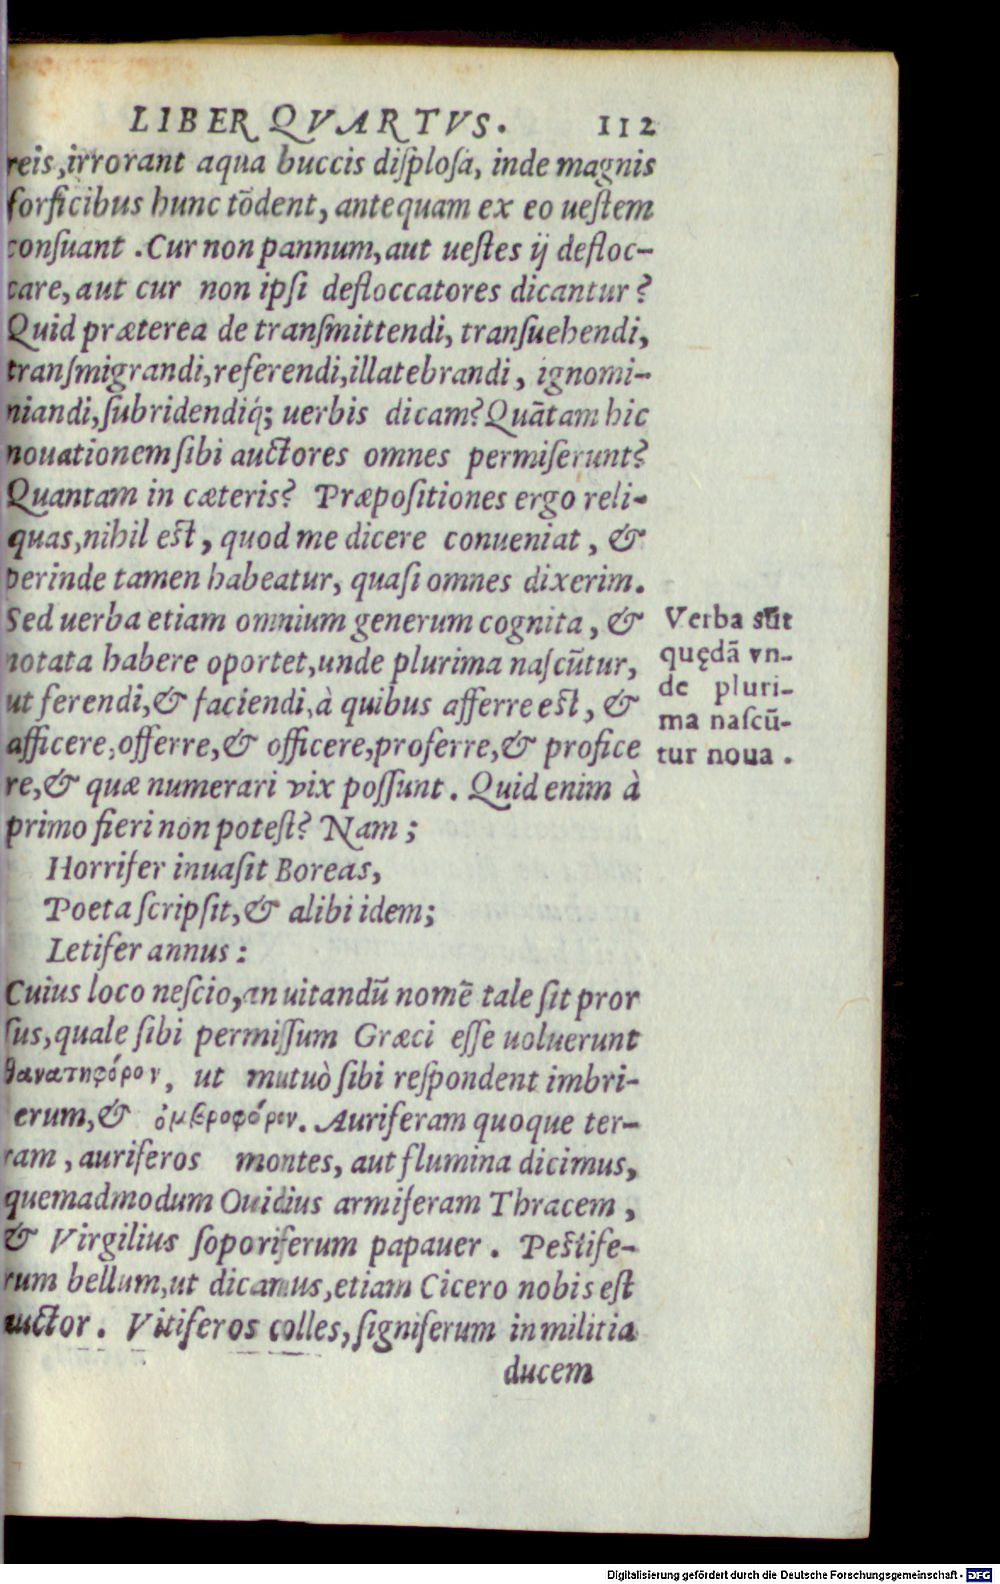 LIBER QVARTVS. 112
reis, irrorant aqua buccis diſploſa, inde magnis
forficibus hunc tōdent, antequam ex eo ueſtem
conſuant. Cur non pannum, aut ueſtes ij defloc-
care, aut cur non ipſi defloccatores dicantur?
Quid præterea de tranſmittendi, tranſuehendi,
tranſmigrandi, referendi, illatebrandi, ignomi-
niandi, ſubridendiq́; uerbis dicam? Quātam hic
nouationem ſibi auctores omnes permiſerunt?
Quantam in cæteris? Præpoſitiones ergo reli-
quas, nihil eſt, quod me dicere conueniat, &
perinde tamen habeatur, quaſi omnes dixerim.
Sed uerba etiam omnium generum cognita, &
notata habere oportet, unde plurima naſcūtur,
ut ferendi, & faciendi, à quibus afferre eſt, &
afficere, offerre, & officere, proferre, & profice
re, & quæ numerari vix poſſunt. Quid enim à
primo fieri non poteſt? Nam;
Horrifer inuaſit Boreas,
Poeta ſcripſit, & alibi idem;
Letifer annus:
Cuius loco neſcio, an uitandū nomē tale ſit pror
ſus, quale ſibi permiſſum Græci eſſe uoluerunt
θανατηφόρον, ut mutuò ſibi reſpondent imbri-
erum, & ὀμβροφόρον. Auriferam quoque ter-
ram, auriferos montes, aut flumina dicimus,
quemadmodum Ouidius armiferam Thracem,
& Virgilius ſoporiferum papauer. Peſtife-
rum bellum, ut dicamus, etiam Cicero nobis eſt
auctor. Vitiferos colles, ſigniferum in militia
ducem
Verba sūt
quędā vn-
de pluri-
ma naſcū-
tur noua.
Digitalisierung gefördert durch die Deutsche Forschungsgemeinschaft - DFG